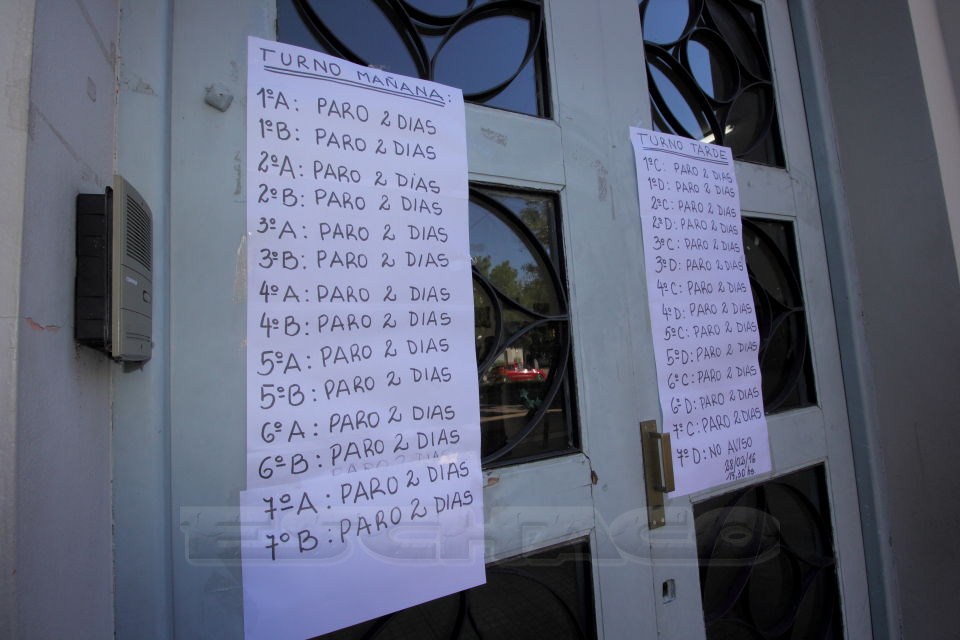 TURNO MAÑANA:
1ºA: PARO 2 DIAS
1ºB: PARO 2 DIAS
2ºA: PARO 2 DIAS
2ºB: PARO 2 DIAS
3ºA: PARO 2 DIAS
3ºB: PARO 2 DIAS
4ºA: PARO 2 DIAS
4ºB: PARO 2 DIAS
5ºA: PARO 2 DIAS
5ºB: PARO 2 DIAS
6ºA: PARO 2 DIAS
6ºB: PARO 2 DIAS
7ºA: PARO 2 DIAS
7ºB: PARO 2 DIAS
TURNO TARDE
1ºC: PARO 2 DIAS
1ºD: PARO 2 DIAS
2ºC: PARO 2 DIAS
2ºD: PARO 2 DIAS
3ºC: PARO 2 DIAS
3ºD: PARO 2 DIAS
4ºC: PARO 2 DIAS
4ºD: PARO 2 DIAS
5ºC: PARO 2 DIAS
5ºD: PARO 2 DIAS
6ºC: PARO 2 DIAS
6ºD: PARO 2 DIAS
7ºC: PARO 2 DIAS
7ºD: NO AVISO
28/02/16